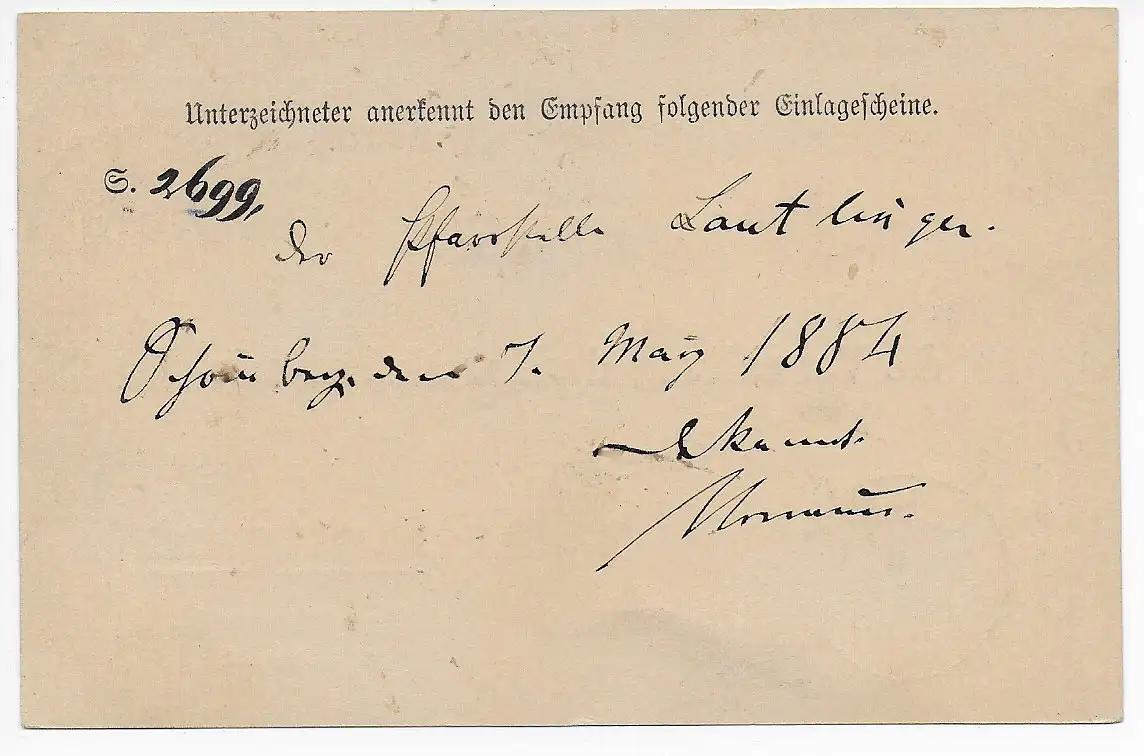 Unterzeichneter anerkennt den Empfang folgender Einlagescheine.
S. 2699,
der Pfarrstelle Lautlingen.
Schömberg, den 7. März 1884
Dekanat.